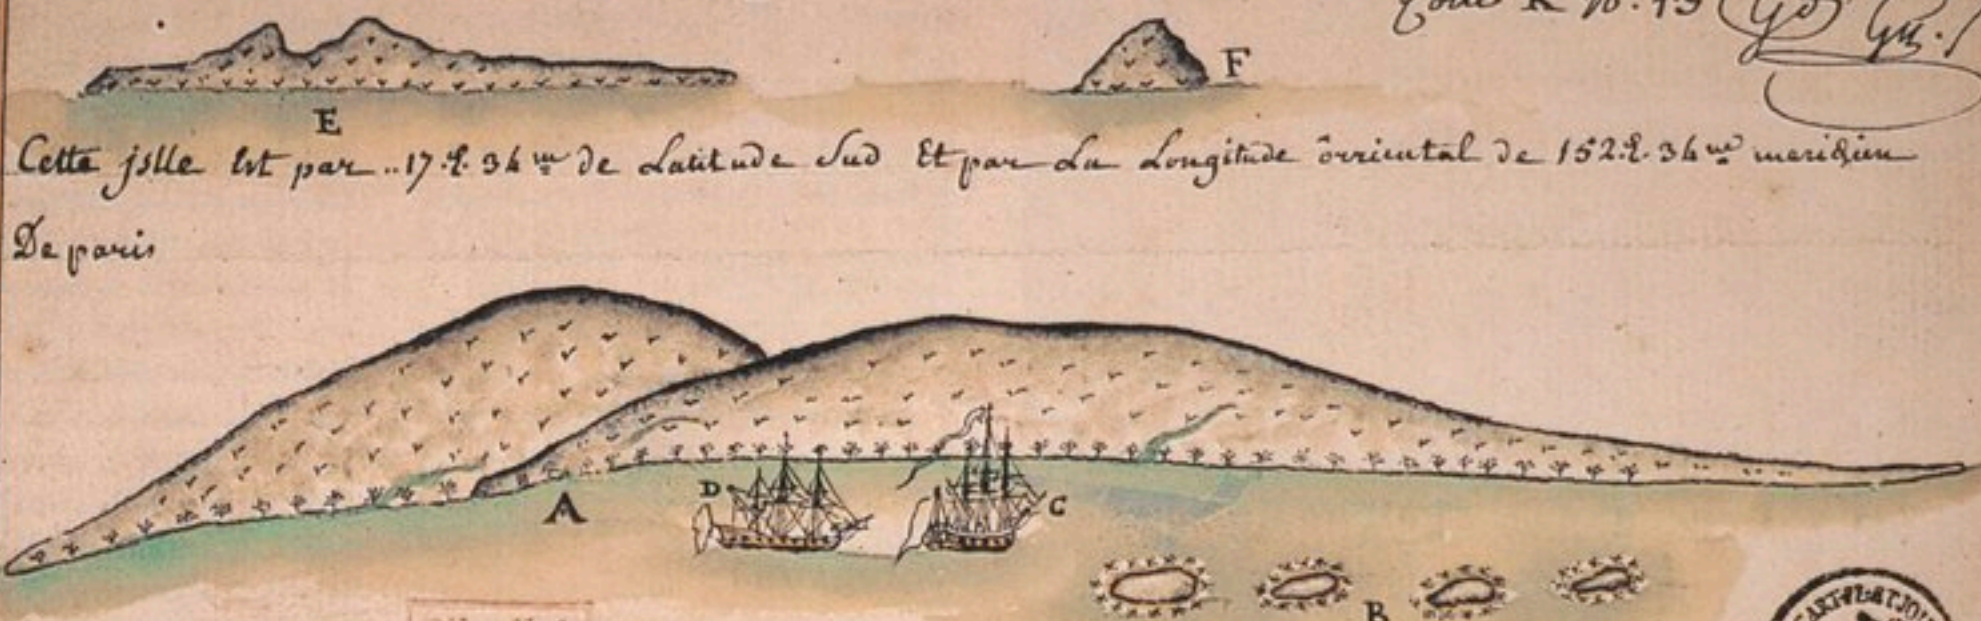 F
E
Cette jslle Est par .. 17.d. 34 m de Latitude Sud Et par La Longitude orriental de 152.d. 34 m meridien
De paris
D
C
A
B